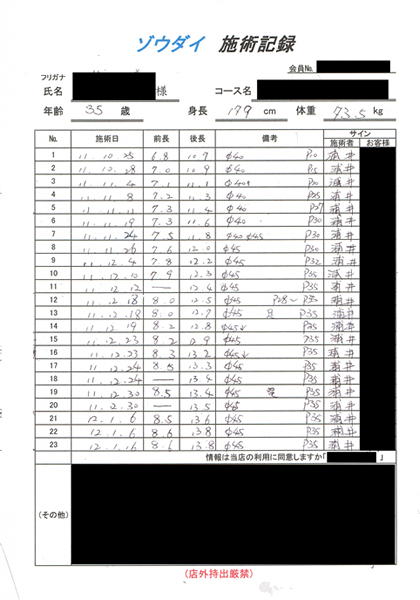 ゾウダイ 施術記録
会員No.
フリガナ
氏名 様 コース名
年齢 35 歳 身長 179 cm 体重 73.5 kg
No. 施術日 前長 後長 備考 サイン
施術者 お客様
1 11.10.25 6.8 10.7 φ40 P10 浦井
2 11.10.28 7.0 10.9 φ40 P15 浦井
3 11.11.4 7.1 11.1 φ40 P20 浦井
4 11.11.8 7.2 11.3 φ40 P25 浦井
5 11.11.11 7.3 11.4 φ40 P27 浦井
6 11.11.19 7.3 11.6 φ40 P30 浦井
7 11.11.24 7.5 11.8 φ40 φ45 P30 浦井
8 11.11.26 7.6 12.0 φ45 P30 浦井
9 11.12.4 7.8 12.2 φ45 P32 浦井
10 11.12.10 7.9 12.3 φ45 P35 浦井
11 11.12.12 — 12.4 φ45 P35 浦井
12 11.12.18 8.0 12.5 φ45 P28~P35 浦井
13 11.12.18 8.0 12.7 φ45 P35 浦井
14 11.12.19 8.2 12.8 φ45↓ P25 浦井
15 11.12.23 8.2 12.9 φ45 P35 浦井
16 11.12.23 8.3 13.2 φ45↓ P35 浦井
17 11.12.24 8.5 13.3 φ45 P35 浦井
18 11.12.24 — 13.4 φ45 P35 浦井
19 11.12.30 8.5 13.4 φ45 P35 浦井
20 — 13.5 φ45 P35 浦井
21 12.1.6 8.5 13.6 φ45 P35 浦井
22 12.1.6 8.6 13.8 φ45 P35 浦井
23 12.1.16 8.6 13.8 φ45 P35 浦井
情報は当店の利用に同意しますか「 」
(その他)
(店外持出厳禁)